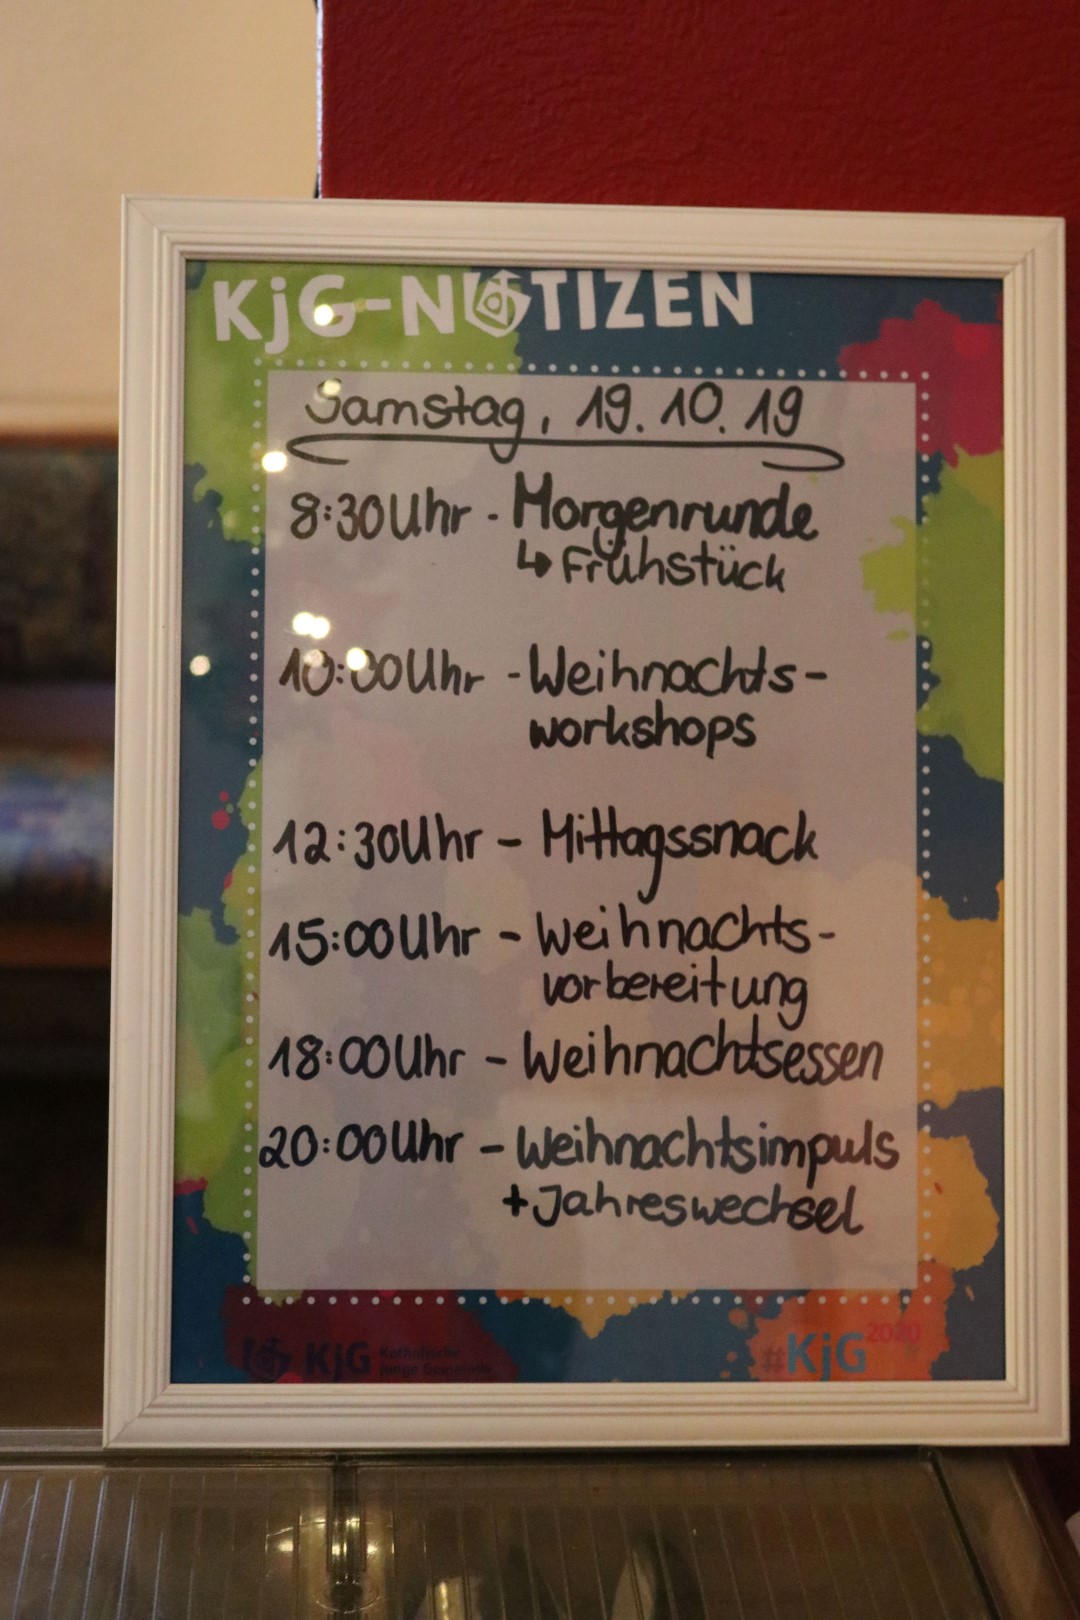 KjG-NOTIZEN
Samstag, 19.10.19
8:30 Uhr - Morgenrunde
↳ Frühstück
10:00 Uhr - Weihnachts-
workshops
12:30 Uhr - Mittagssnack
15:00 Uhr - Weihnachts-
vorbereitung
18:00 Uhr - Weihnachtsessen
20:00 Uhr - Weihnachtsimpuls
+ Jahreswechsel
KjG Katholische
junge Gemeinde
#KjG2020